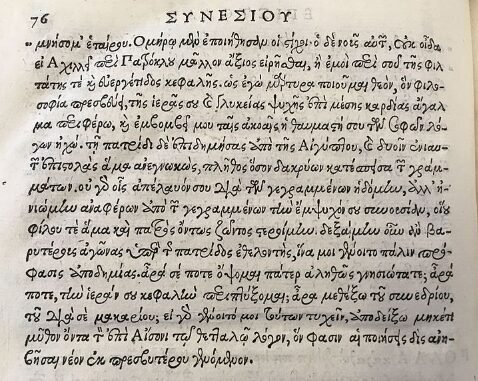 76 ΣΥΝΕΣΙΟΥ
„μνήσομ' ἑταίρου. Ὁμήρῳ μὲν ἐποιήθησαν οἱ στίχοι· ὁ δὲ νοῦς αὐτῶν, οὐκ οἶδα
εἰ Ἀχιλλεῖ περὶ Πατρόκλου μᾶλλον ἄξιος εἰρῆσθαι, ἢ ἐμοὶ περὶ σοῦ τῆς φιλ-
τάτης τε καὶ εὐεργέτιδος κεφαλῆς. ὡς ἐγὼ μάρτυρα ποιοῦμαι θεὸν, ὃν φιλο-
σοφία πρεσβεύει, τῆς ἱερᾶς σου καὶ γλυκείας ψυχῆς ἐπὶ μέσης καρδίας ἄγαλ-
μα περιφέρω, καὶ ἐμβομβεῖ μου ταῖς ἀκοαῖς ἡ θαυμαστή σου τῶν σοφῶν λό-
γων ἠχώ. τῇ πατρίδι δὲ ἐπιδημήσας ὑπὸ τῆς Αἰγύπτου, καὶ δυοῖν ἐνιαυ-
τῶν ἐπιστολὰς ἅμα ἀνεγνωκὼς, πλῆθος ὅσον δακρύων κατέσπεισα τῶν γραμ-
μάτων. οὐ γὰρ οἷς ἀπέλαυόν σου διὰ τῶν γεγραμμένων ἡδόμην, ἀλλ' ἠ-
νιώμην ἀναφέρων ὑπὸ τῶν γεγραμμένων τὴν ἔμψυχόν σου συνουσίαν, οἵου
φίλου τε ἅμα καὶ πατρὸς ὄντως ζῶντος ἐστεροίμην. δεξαίμην ἂν οὖν βα-
ρυτέρους ἀγῶνας ὑπὲρ τῆς πατρίδος ἐθελοντὴς, ἵνα μοι γένοιτο πάλιν πρό-
φασις ἀποδημίας. ἆρά σέ ποτε ὄψομαι πάτερ ἀληθῶς γνησιώτατε; ἆρά
ποτε, τὴν ἱεράν σου κεφαλὴν περιπτύξομαι; ἆρα μεθέξω τοῦ συνεδρίου,
τοῦ διὰ σὲ μακαρίου; εἰ γὰρ γένοιτό μοι τούτων τυχεῖν, ἀποδείξω μηκέτι
μῦθον ὄντα τὸν ἐπὶ Αἴσονι τῷ θετταλῷ λόγον, ὅν φασιν αἱ ποιήσεις δὶς ἀνη-
βῆσαι νέον ἐκ πρεσβυτέρου γενόμενον.